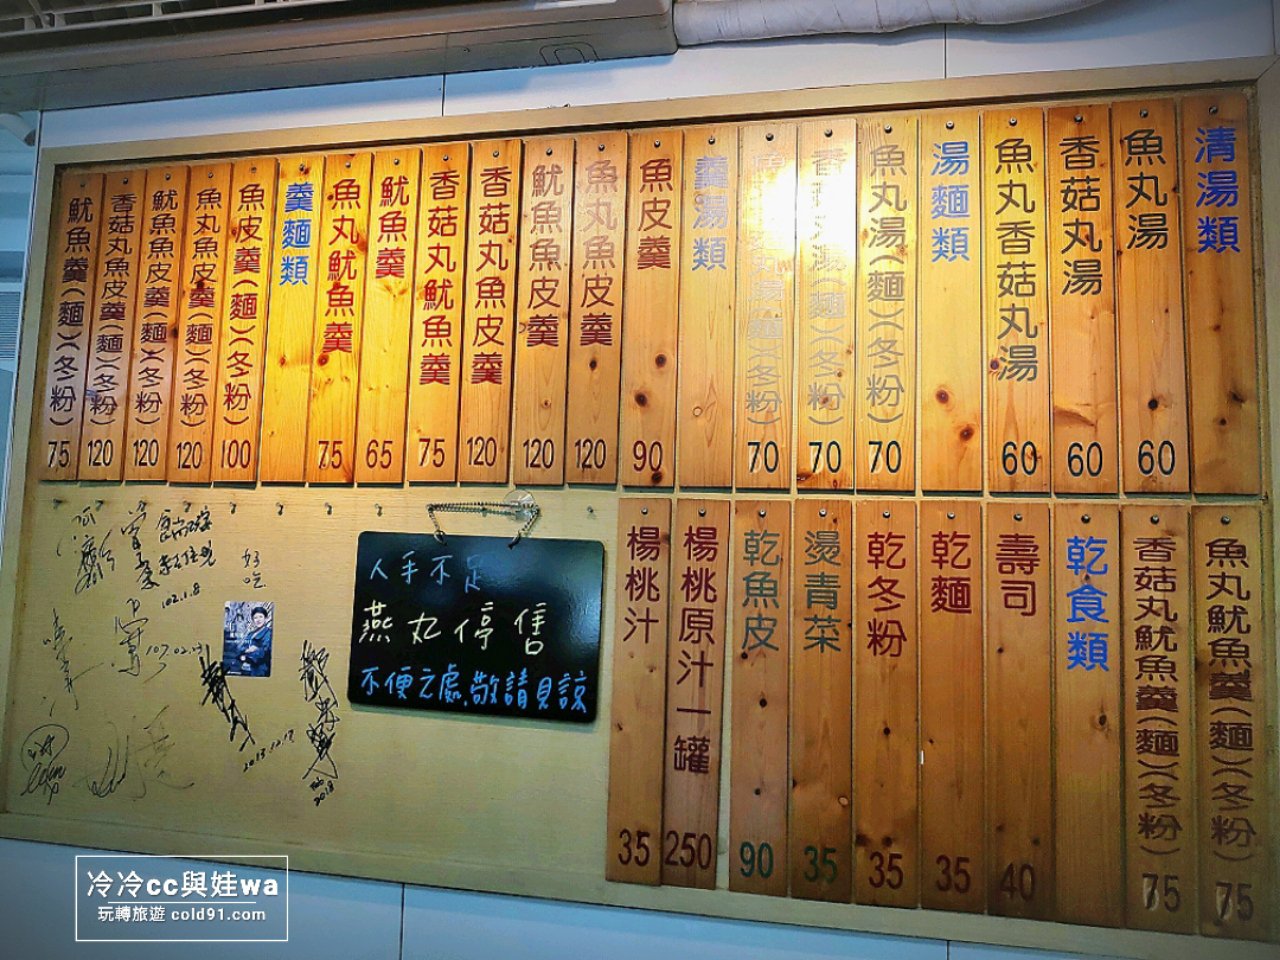 清湯類
魚丸湯 60
香菇丸湯 60
魚丸香菇丸湯 60
湯麵類
魚丸湯(麵)(冬粉) 70
香菇丸湯(麵)(冬粉) 70
丸湯(麵)(冬粉) 70
羹湯類
魚皮羹 90
魚丸魚皮羹 120
魷魚魚皮羹 120
香菇丸魚皮羹 120
香菇丸魷魚羹 75
魷魚羹 65
魚丸魷魚羹 75
羹麵類
魚皮羹(麵)(冬粉) 100
魚丸魚皮羹(麵)(冬粉) 120
魷魚魚皮羹(麵)(冬粉) 120
香菇丸魚皮羹(麵)(冬粉) 120
魷魚羹(麵)(冬粉) 75
魚丸魷魚羹(麵)(冬粉) 75
香菇丸魷魚羹(麵)(冬粉) 75
乾食類
壽司 40
乾麵 35
乾冬粉 35
燙青菜 35
乾魚皮 90
楊桃原汁一罐 250
楊桃汁 35
人手不足
燕丸停售
不便之處,敬請見諒
好吃
102.1.8
107.02.13
2013.10.17
2018
冷冷cc與娃wa
玩轉旅遊 cold91.com